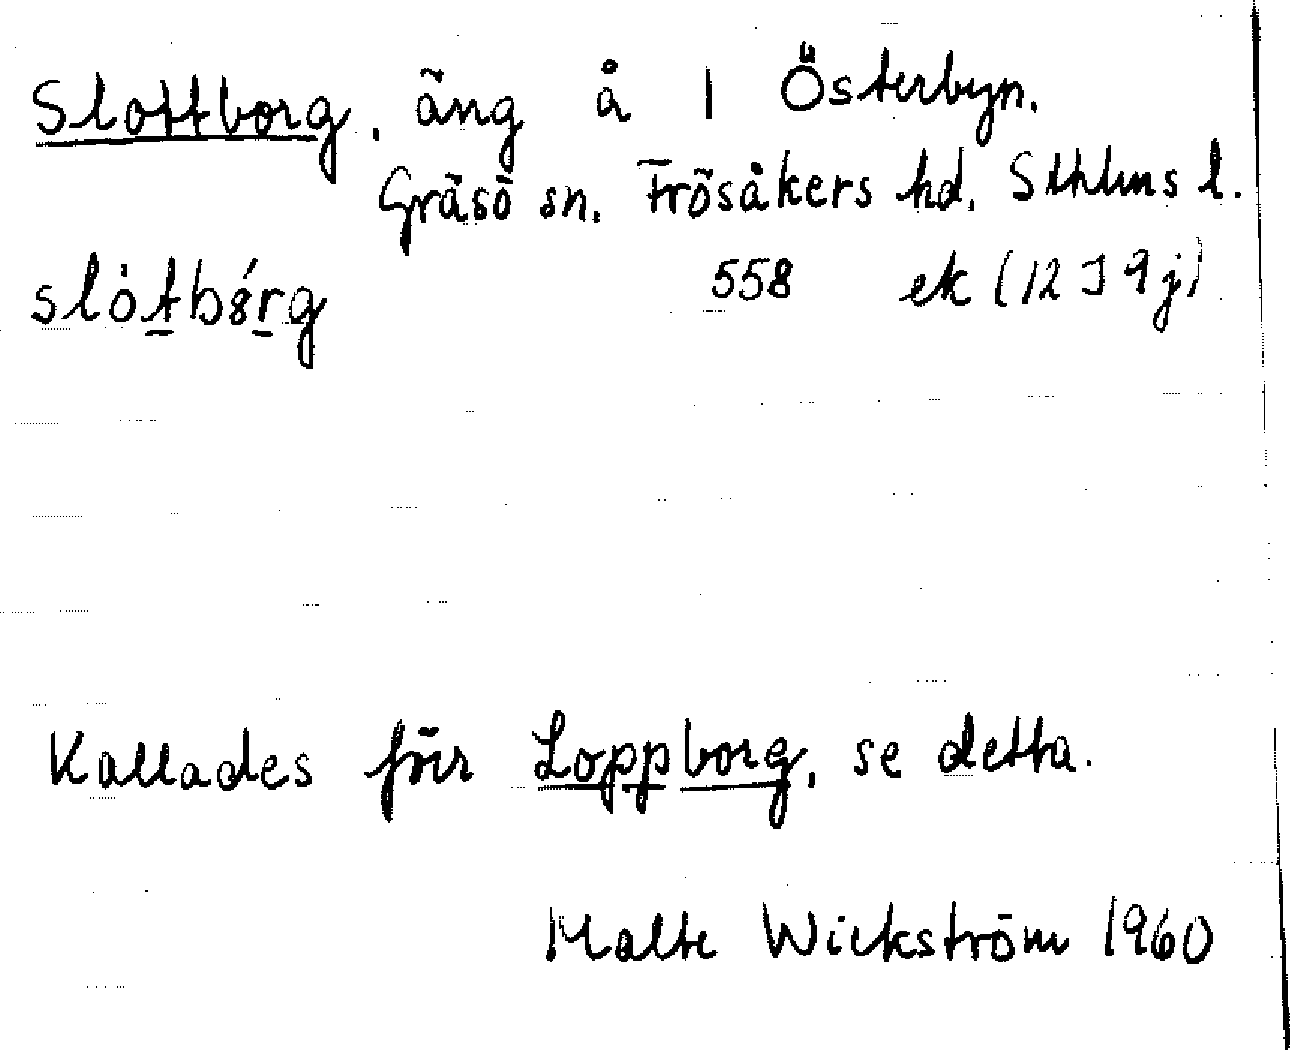 Slottborg, äng å 1 Österbyn.
Gräsö sn. Frösåkers hd. Sthlms l.
slȯtbȣ́rg 558 ek (12 I 9 j)
Kallades förr Loppborg, se detta.
Malte Wickström 1960